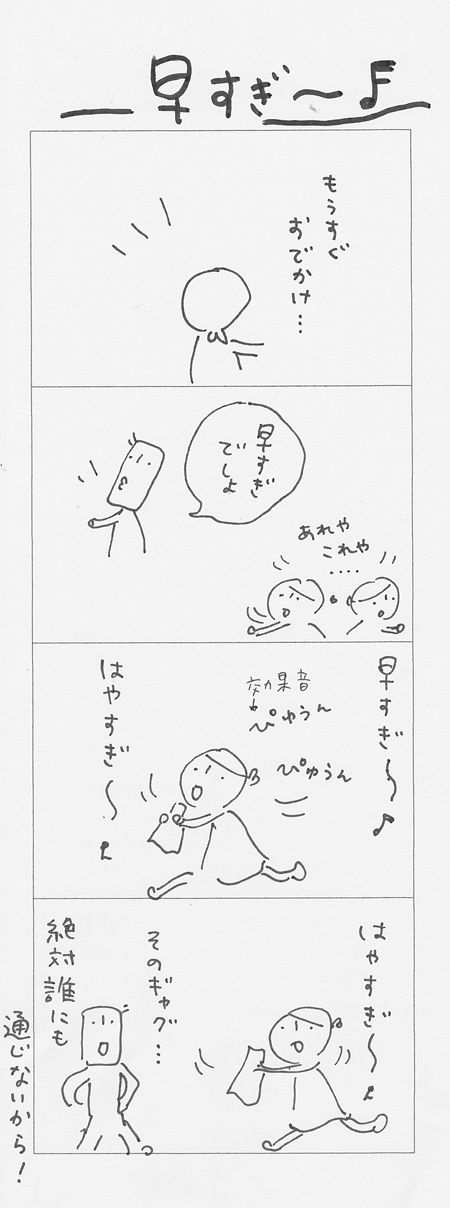 早すぎ〜♪
もうすぐ
おでかけ…
早すぎ
でしょ
あれや
これや
‥‥
早すぎ〜♪
効果音
ぴゅうん
ぴゅうん
はやすぎ〜♪
はやすぎ〜♪
そのギャグ…
絶対誰にも
通じないから!